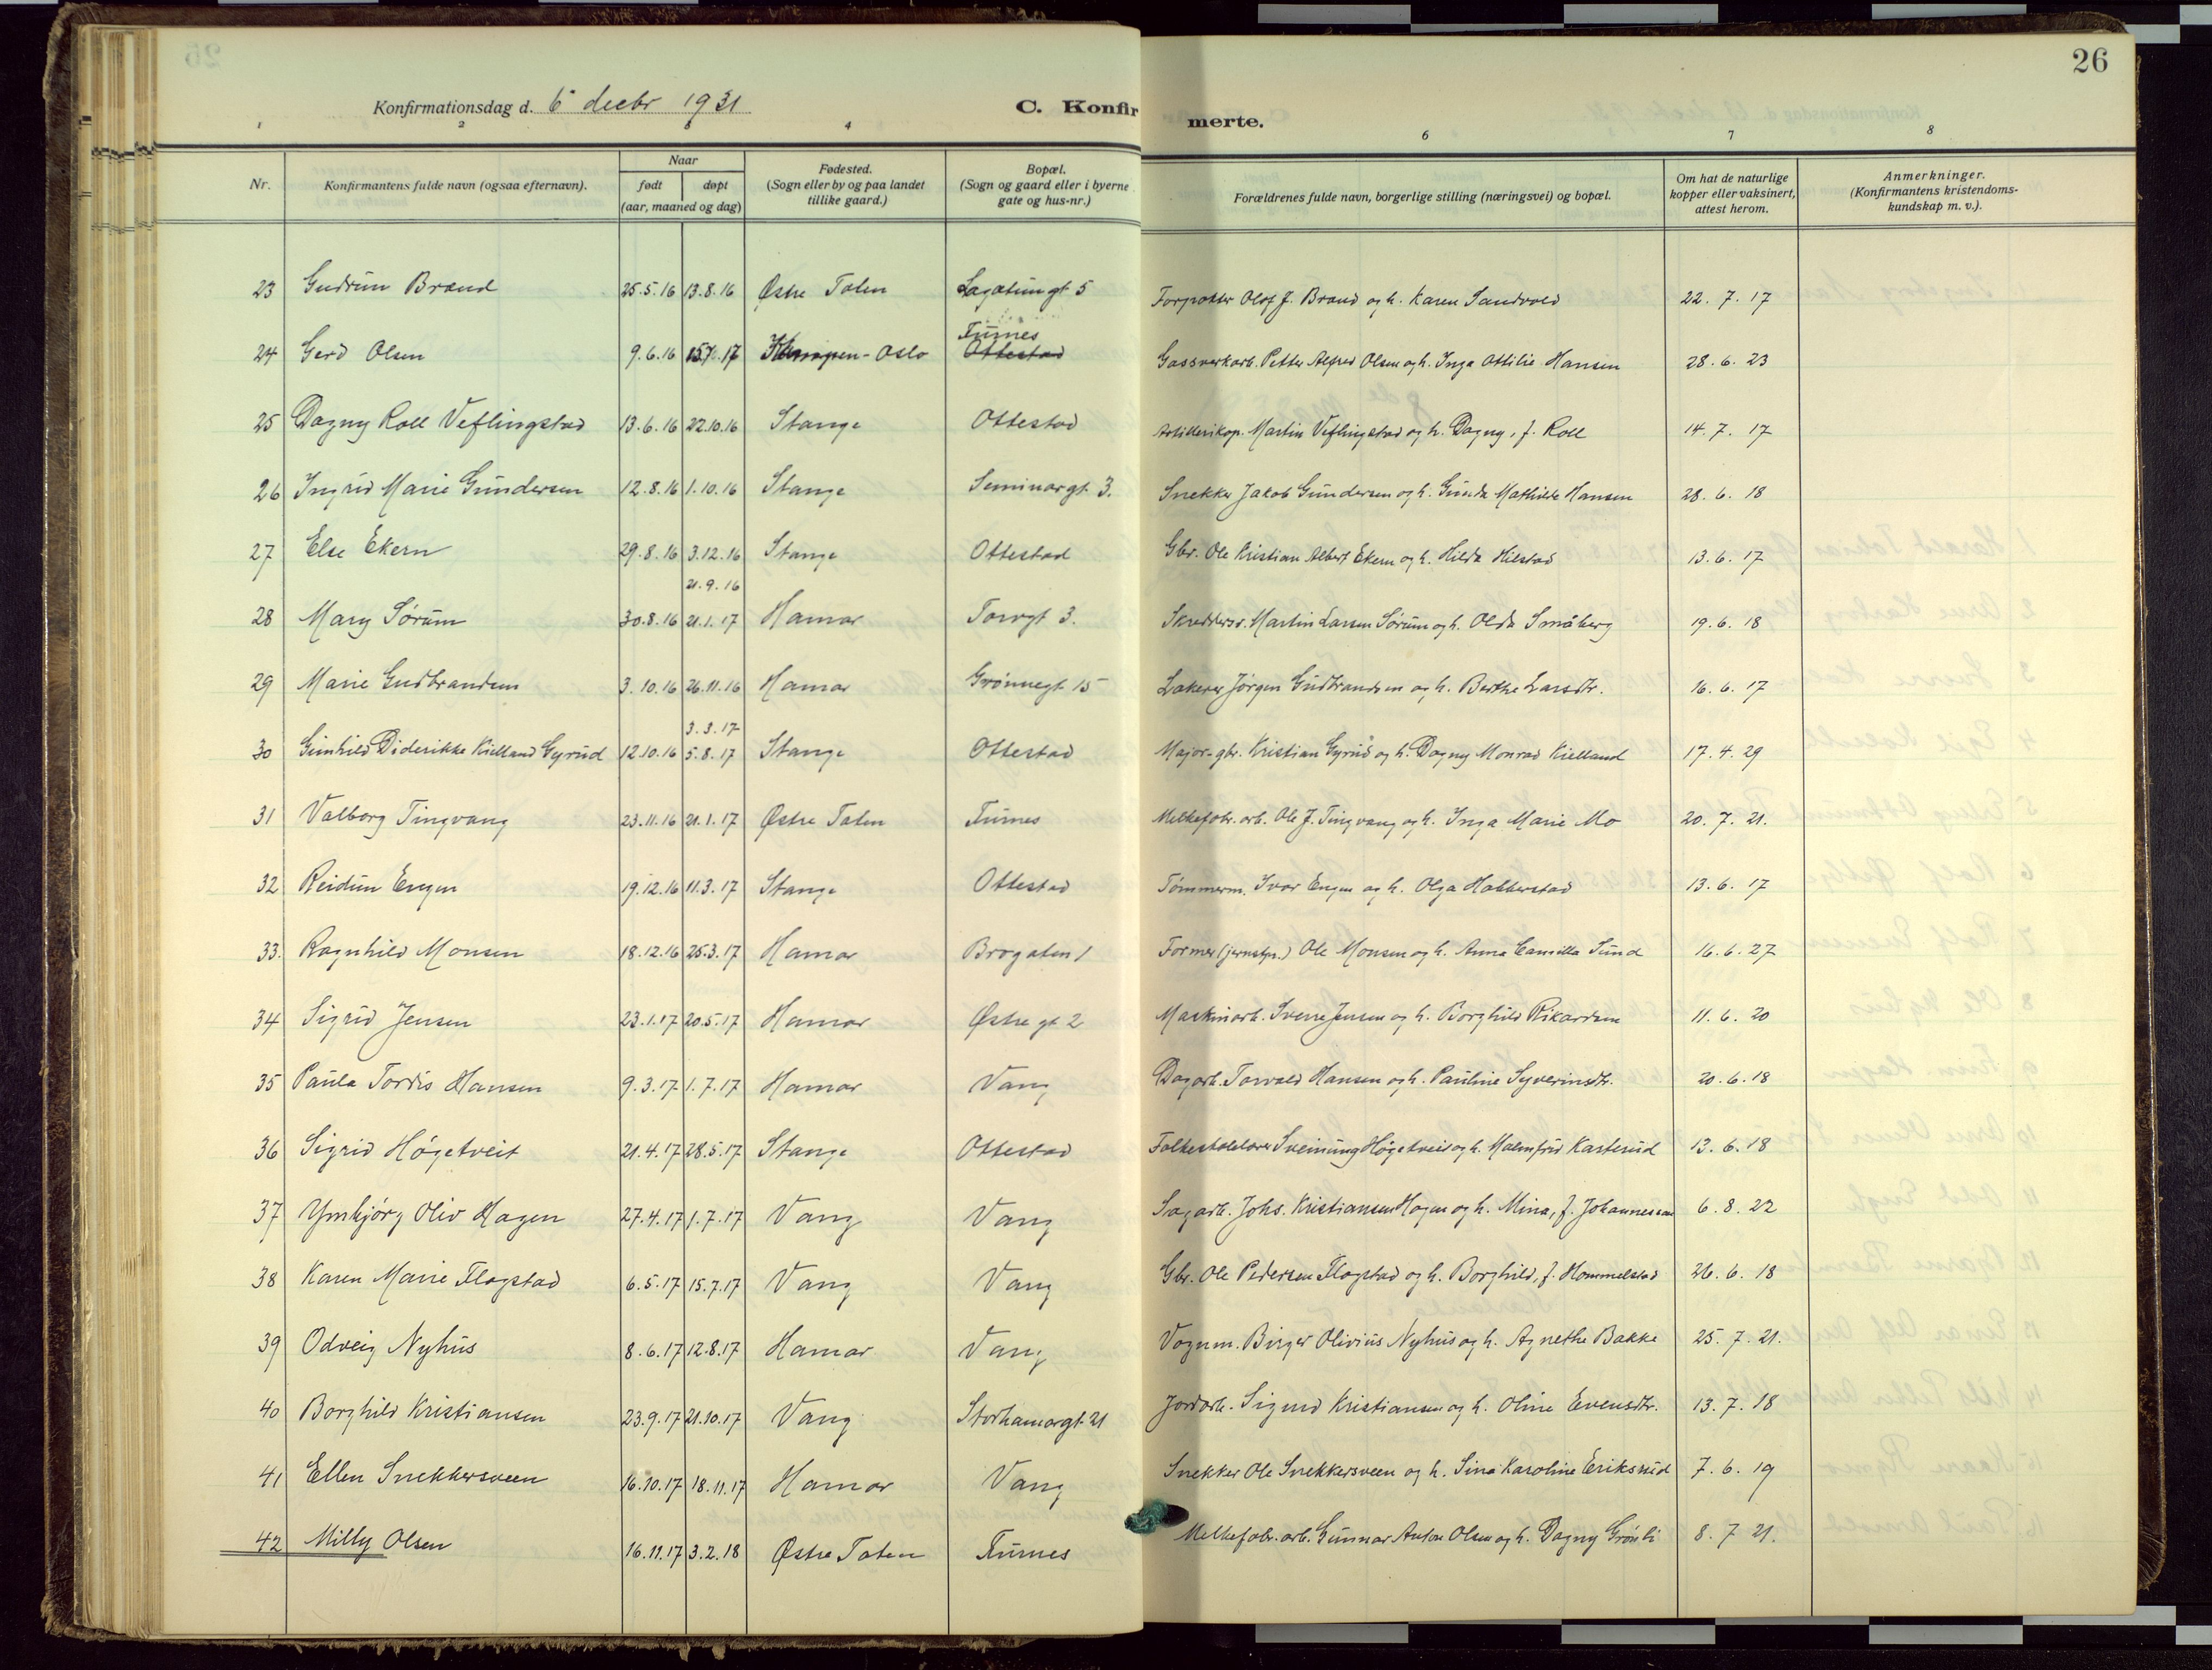 26
Konfirmationsdag d. 6 decbr 1931
C. Konfirmerte.
1 2 3 4 6 7 8
Nr.
Konfirmantens fulde navn (ogsaa efternavn).
Naar
født
døpt
(aar, maaned og dag)
Fødested.
(Sogn eller by og paa landet
tillike gaard.)
Bopæl.
(Sogn og gaard eller i byerne
gate og hus-nr.)
Forældrenes fulde navn, borgerlige stilling (næringsvei) og bopæl.
Om hat de naturlige
kopper eller vaksinert,
attest herom.
Anmerkninger.
(Konfirmantens kristendoms-
kundskap m. v.).
23 Gudrun Brænd 25.5.16 13.8.16 Østre Toten Lagatungt 5 Olof J. Brænd og h. Karen Sandvold 22.7.17
Furnes
24 Gerd Olsen 9.6.16 15.7.17 Kampen-Oslo Ottestad Gassverkarb. Petter Alfred Olsen og h. Inga Ottilie Hansen 28.6.23
25 Dagny Roll Veflingstad 13.6.16 22.10.16 Stange Ottestad Artillerikap. Martin Veflingstad og h. Dagny, f. Roll 14.7.17
26 Ingrid Marie Gundersen 12.8.16 1.10.16 Stange Seminargt 3. Snekker Jakob Gundersen og h. Gunda Mathilde Hansen 28.6.18
27 Else Ekern 29.8.16 3.12.16 Stange Ottestad Gbr. Ole Kristian Albert Ekern og h. Hilda Hilstad 13.6.17
21.9.16
28 Mary Sørum 30.8.16 21.1.17 Hamar Torvgt 3. Skreddersv. Martin Larsen Sørum og h. Olda Småberg 19.6.18
29 Marie Gudbrandsen 3.10.16 26.11.16 Hamar Grønnegt 15 Lakerer Jørgen Gudbrandsen og h. Berthe Larsdtr. 16.6.17
3.3.17
30 Gunhild Diderikke Kielland Gyrud 12.10.16 5.8.17 Stange Ottestad Major-gbr. Kristian Gyrud og h. Dagny Monrad Kielland 17.4.29
31 Valborg Tingvang 23.11.16 21.1.17 Østre Toten Furnes Melkefabr. arb. Ole J. Tingvang og h. Inga Marie Mo 20.7.21.
32 Reidun Engen 19.12.16 11.3.17 Stange Ottestad Tømmerm. Ivar Engen og h. Olga Habberstad 13.6.17
33. Ragnhild Monsen 18.12.16 25.3.17 Hamar Brogaten 1 Former (jernstøp.) Ole Monsen og h. Anna Camilla Sund 16.6.27
34 Sigrid Jensen 23.1.17 20.5.17 Hamar Østre gt 2 Maskinarb. Sverre Jensen og h. Borghild Rikardsen 11.6.20
35 Paula Tordis Hansen 9.3.17 1.7.17 Hamar Vang Dagarb. Torvald Hansen og h. Pauline Syverinsdtr. 20.6.18
36 Sigrid Høgetveit 21.4.17 28.5.17 Stange Ottestad Folkeskolelærer Sveinung Høgetveit og h. Malmfrid Karterud 13.6.18
37 Ymbjørg Oliv Hagen 27.4.17 1.7.17 Vang Vang Sagarb. Johs. Kristiansen Hagen og h. Mina, f. Johannessen 6.8.22
38 Karen Marie Flagstad 6.5.17 15.7.17 Vang Vang Gbr. Ole Pedersen Flagstad og h. Borghild, f. Hommelstad 26.6.18
39 Odveig Nyhus 8.6.17 12.8.17 Hamar Vang Vognm. Birger Olivius Nyhus og h. Agnethe Bakke 25.7.21.
40 Borghild Kristiansen 23.9.17 21.10.17 Vang Storhamargt. 21 Jordarb. Sigurd Kristiansen og h. Oline Evensdtr. 13.7.18
41 Ellen Snekkersveen 16.10.17 18.11.17 Hamar Vang Snekker Ole Snekkersveen og h. Sina Karoline Eriksrud 7.6.19
42 Milly Olsen 16.11.17 3.2.18 Østre Toten Furnes Melkefabr. arb. Gunnar Anton Olsen og h. Dagny Grønli 8.7.21.